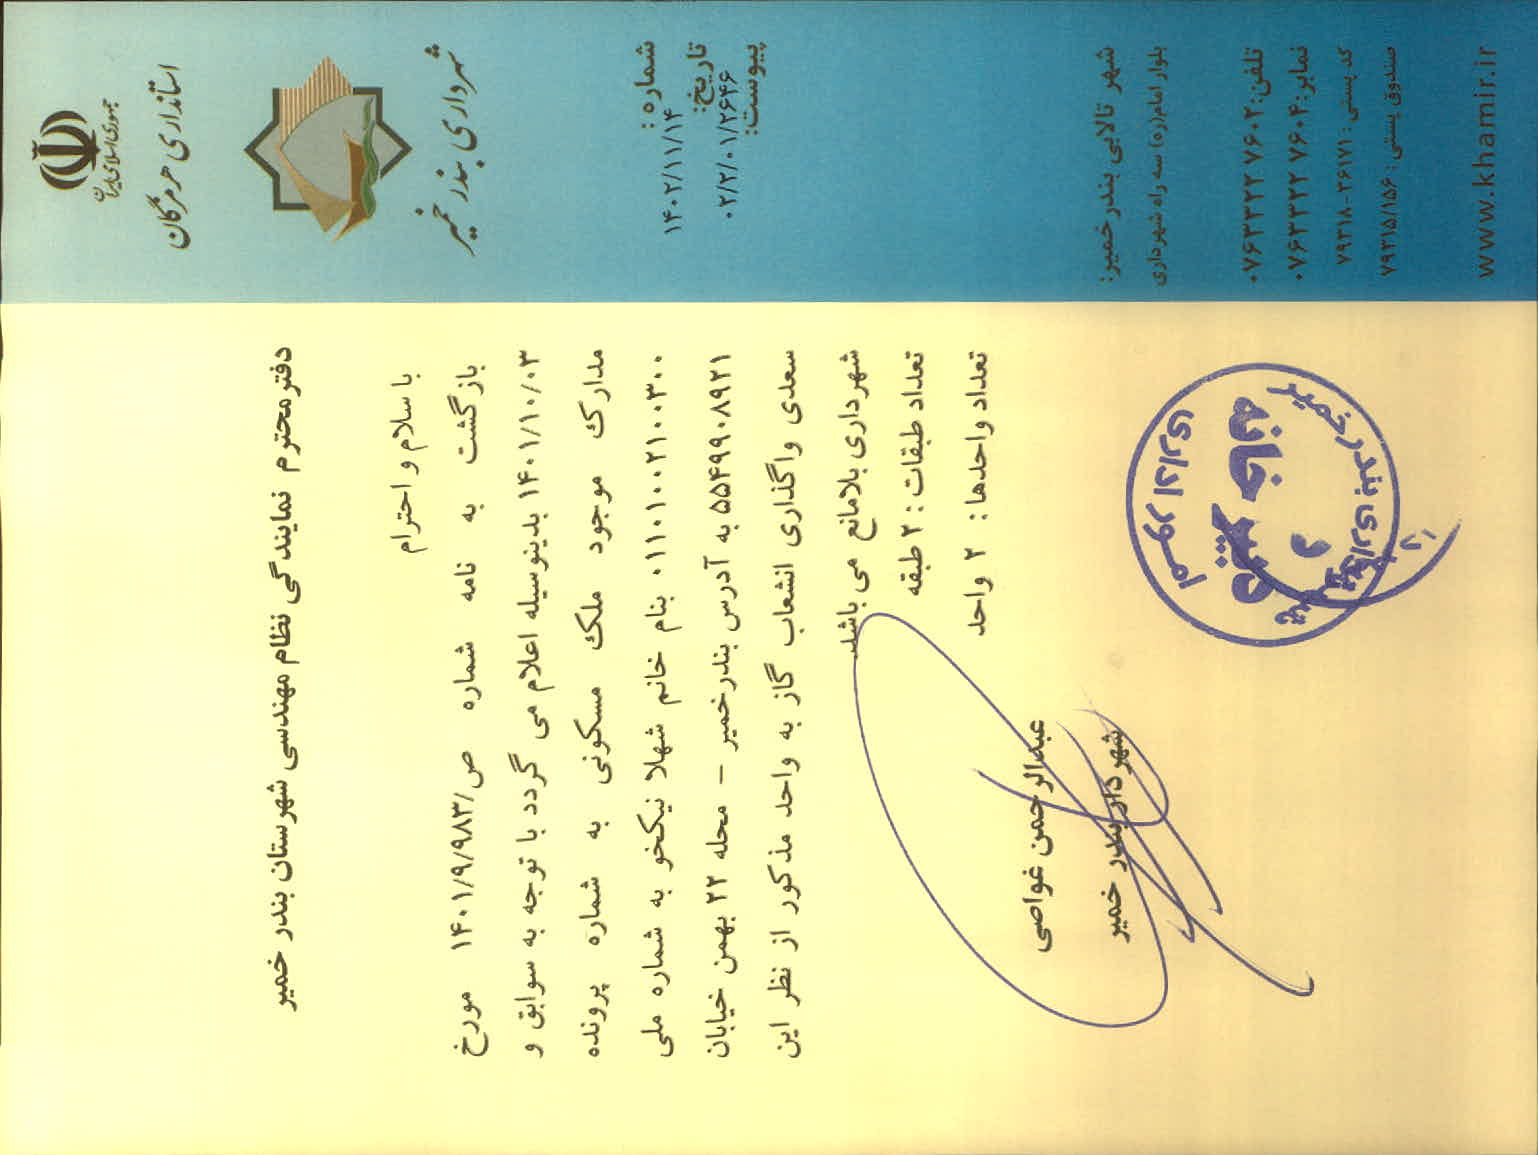 جمهوری اسلامی ایران
استانداری هرمزگان
شهرداری بندر خمیر
شماره :
۱۴۰۲/۱۱/۱۴
تاریخ:
۰۲/۲/۰۱/۲۶۴۶
پیوست:
شهر تالابی بندر خمیر:
بلوار امام(ره) سه راه شهرداری
تلفن: ۰۷۶۳۳۲۲۷۶۰۲
نمابر: ۰۷۶۳۳۲۲۷۶۰۴
کد پستی : ۲۶۱۷۱-۷۹۳۱۸
صندوق پستی : ۷۹۳۱۵/۱۵۶
www.khamir.ir
دفتر محترم نمایندگی نظام مهندسی شهرستان بندر خمیر
با سلام و احترام
بازگشت به نامه شماره ص/۱۴۰۱/۹/۹۸۳ مورخ
۱۴۰۱/۱۰/۰۳ بدینوسیله اعلام می گردد با توجه به سوابق و
مدارک موجود ملک مسکونی به شماره پرونده
۰۱۱۰۱۰۰۲۱۰۰۳۰۰ بنام خانم شهلا نیکخو به شماره ملی
۵۵۴۹۹۰۸۹۲۱ به آدرس بندرخمیر – محله ۲۲ بهمن خیابان
سعدی واگذاری انشعاب گاز به واحد مذکور از نظر این
شهرداری بلامانع می باشد
تعداد طبقات : ۲ طبقه
تعداد واحدها : ۲ واحد
عبدالرحمن غواصی
شهردار بندر خمیر
امور اداری
دبیر خانه
شهرداری بندر خمیر